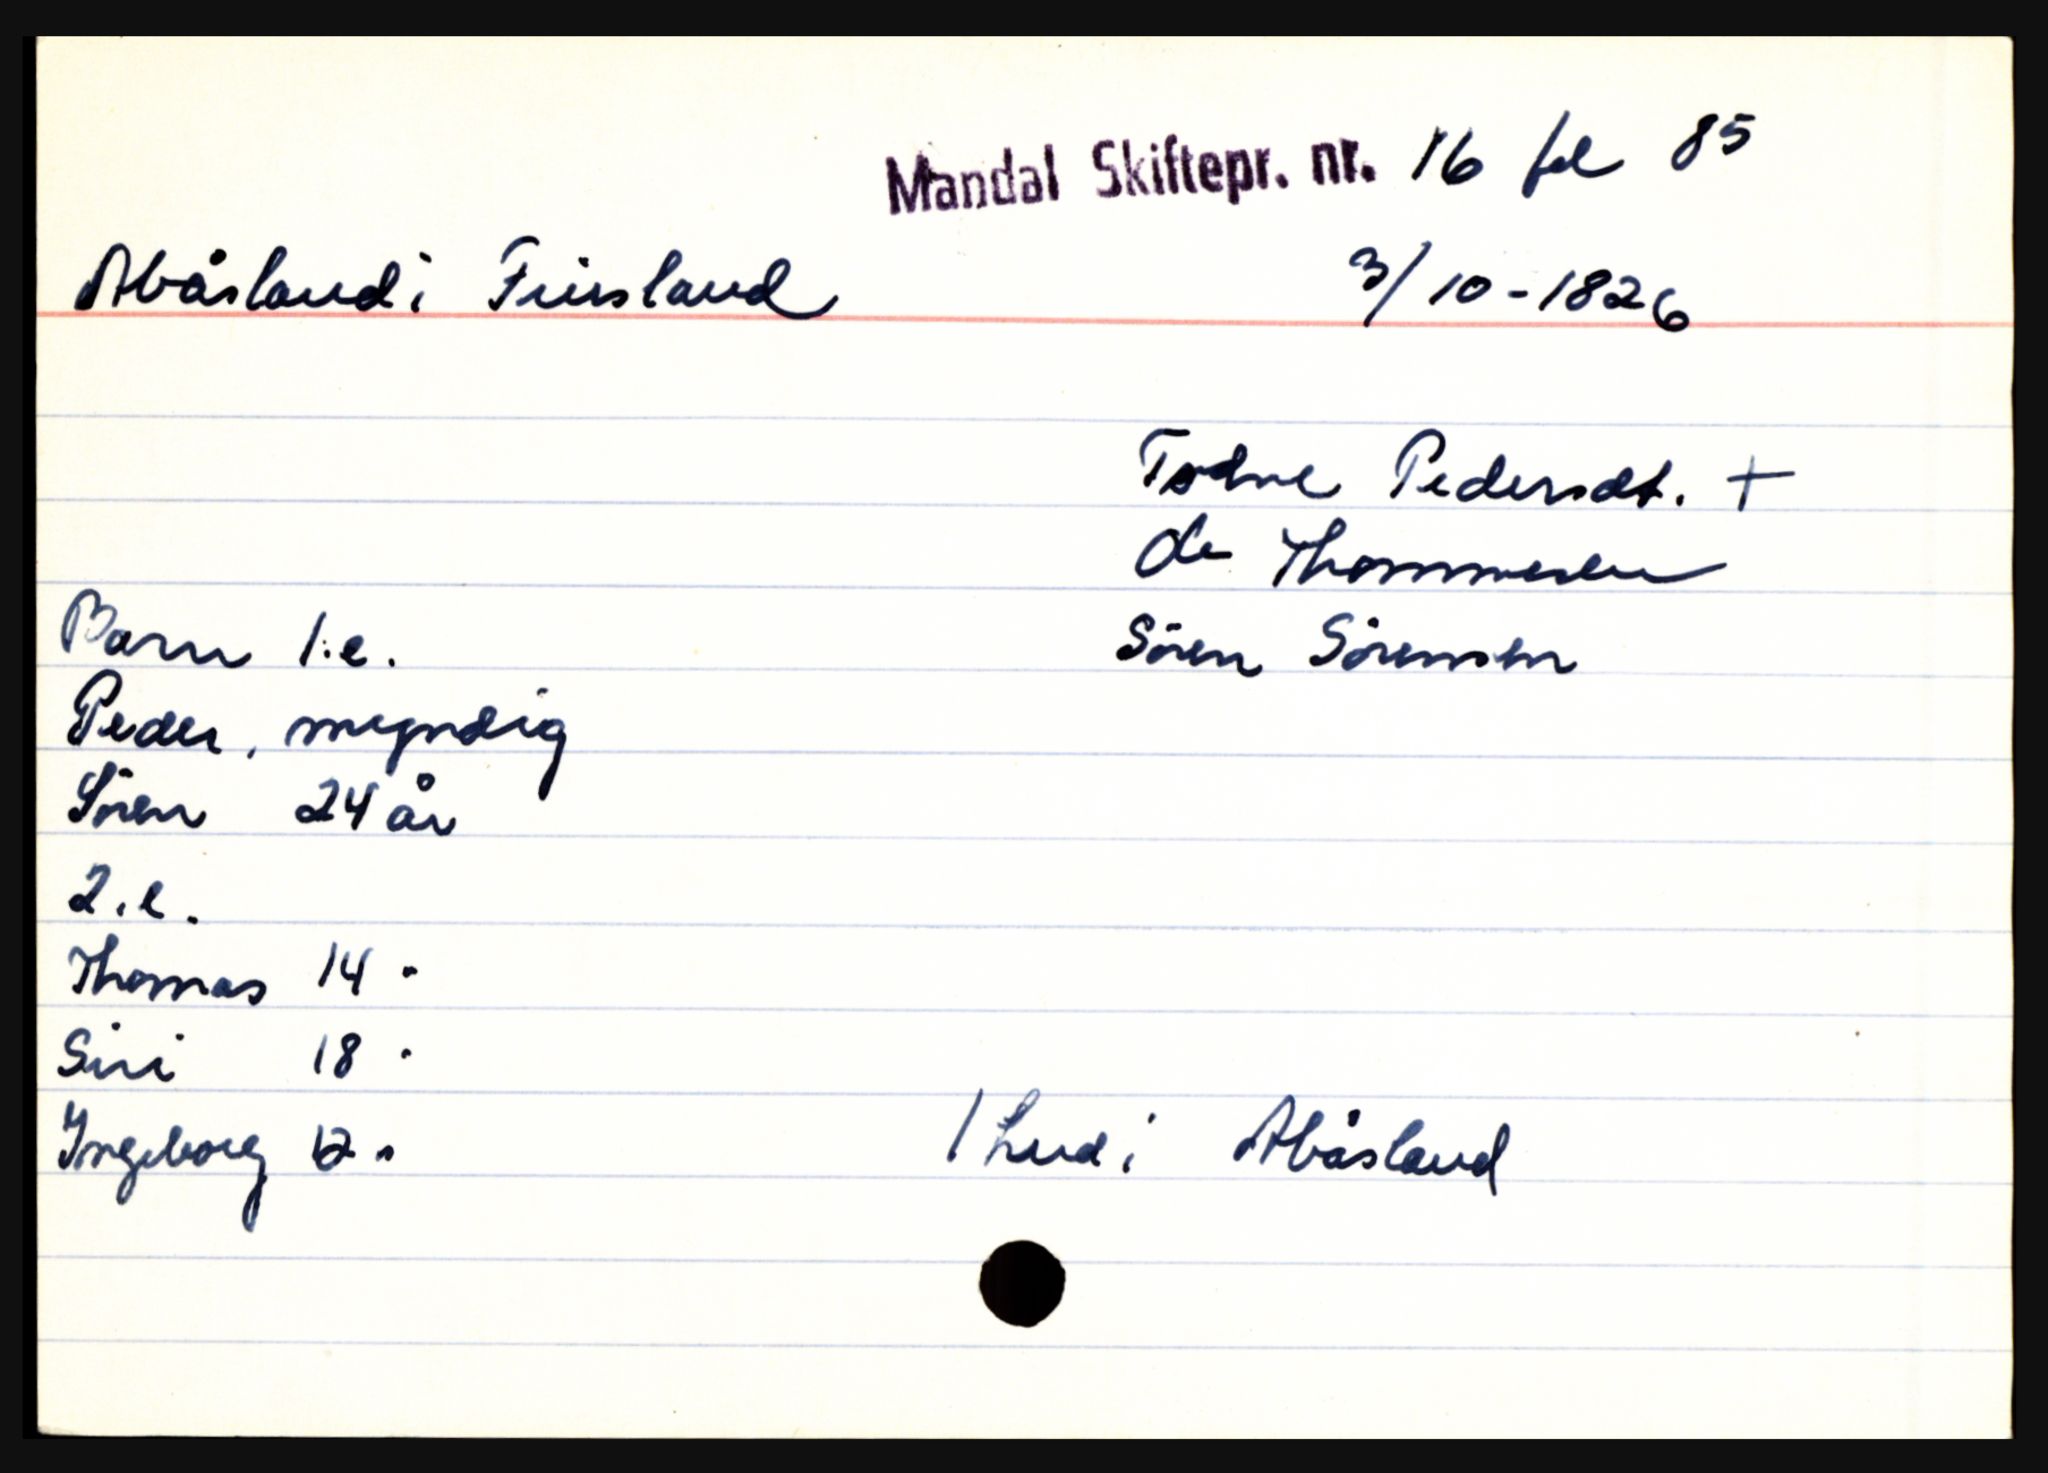 Mandal Skiftepr. nr. 16 fol 85
Abåsland i Finsland 3/10-1826
Todne Pedersdt. +
Ole Thommesen
Barn 1.e. Sören Sörensen
Peder, myndig
Sören 24 år
2.e.
Thomas 14 "
Siri 18 "
Ingeborg 12 " 1 hud i Abåsland